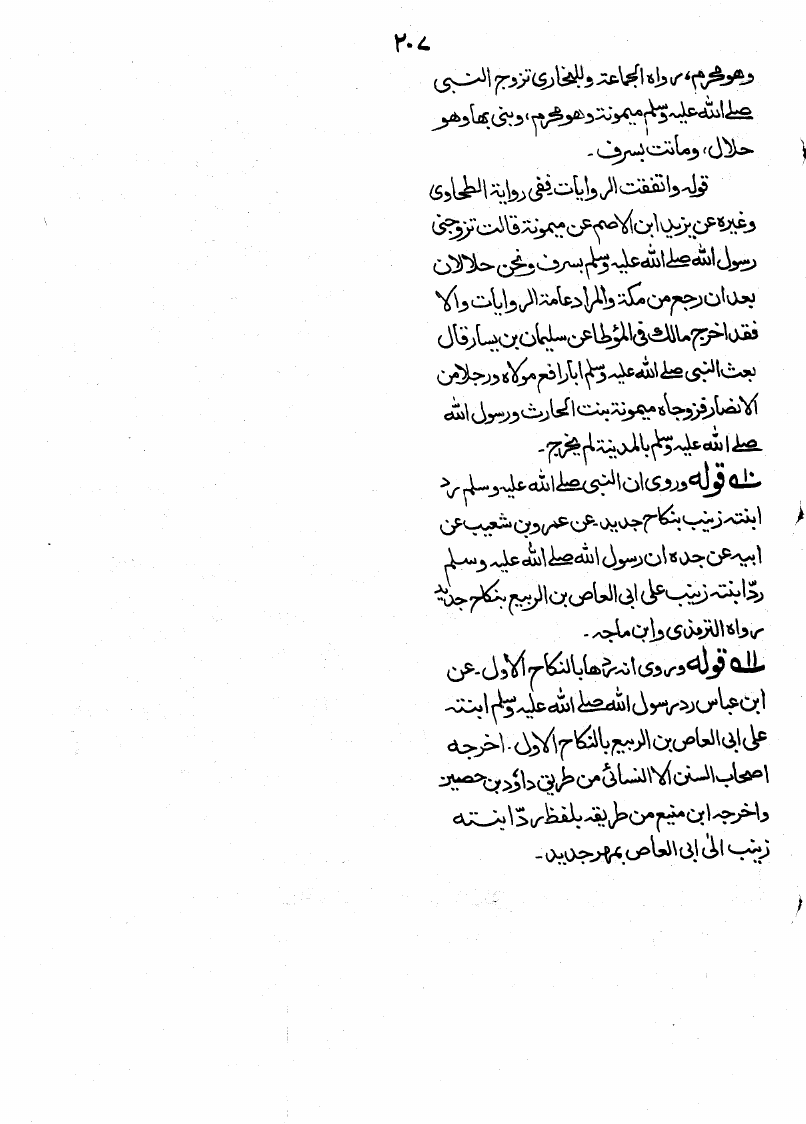 ٢٠٧
وهو محرم، رواه الجماعة وللبخاري تزوج النبي
صلى الله عليه وسلم ميمونة وهو محرم، وبنى بها وهو
حلال، وماتت بسرف۔
قوله واتفقت الروايات ففي رواية الطحاوي
وغيره عن يزيد ابن الاصم عن ميمونة قالت تزوجني
رسول الله صلى الله عليه وسلم بسرف ونحن حلالان
بعد ان رجع من مكة والمراد عامة الروايات والا
فقد اخرج مالك في المؤطا عن سليمان بن يسار قال
بعث النبي صلى الله عليه وسلم ابا رافع مولاه ورجلا من
الانصار فزوجاه ميمونة بنت الحارث ورسول الله
صلى الله عليه وسلم بالمدينة لم يخرج۔
١٠؎ قوله وروى ان النبي صلى الله عليه وسلم رد
ابنته زينب بنكاح جديد۔ عن عمرو بن شعيب عن
ابيه عن جده ان رسول الله صلى الله عليه وسلم
ردّ ابنته زينب على ابى العاص بن الربيع بنكاح جديد
رواه الترمذى وابن ماجه۔
١١؎ قوله وروى انه ردها بالنكاح الاول۔ عن
ابن عباس رد رسول الله صلى الله عليه وسلم ابنته
على ابى العاص بن الربيع بالنكاح الاول۔ اخرجه
اصحاب السنن الا النسائى من طريق داؤد بن حصين
واخرجه ابن منيع من طريقه بلفظ ردّ ابنته
زينب الىٰ ابى العاص بمهر جديد۔